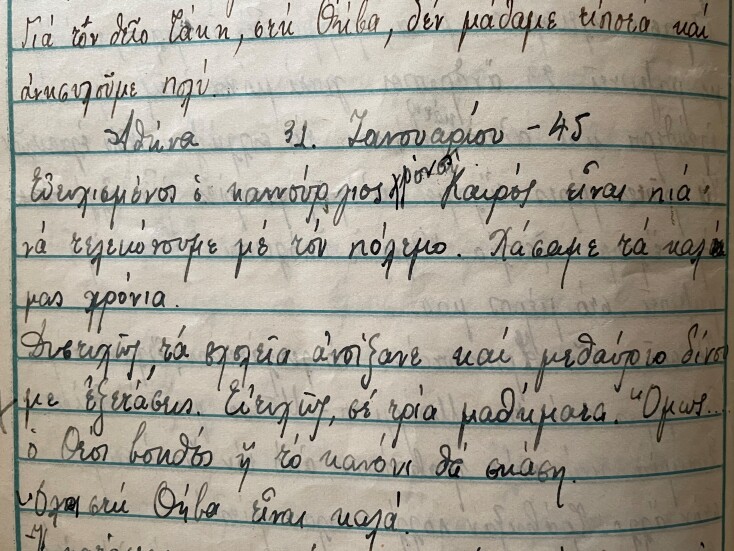 Γιά τόν θεῖο Τάκη, στή Θήβα, δέν μάθαμε τίποτα καί
ἀνησυχοῦμε πολύ.
Ἀθήνα 31. Ἰανουαρίου - 45
Εὐτυχισμένος ὁ καινούργιος χρόνος! Καιρός εἶναι πιά
νά τελειώνουμε μέ τόν πόλεμο. Χάσαμε τά καλά
μας χρόνια.
Δυστυχῶς, τά σχολεῖα ἀνοίξανε καί μεθαύριο δίνου
με ἐξετάσεις. Εὐτυχῶς, σέ τρία μαθήματα. Ὅμως...
ὁ Θεός βοηθός ἤ τό κανόνι θά σκάση.
Ὅλοι στή Θήβα εἶναι καλά.